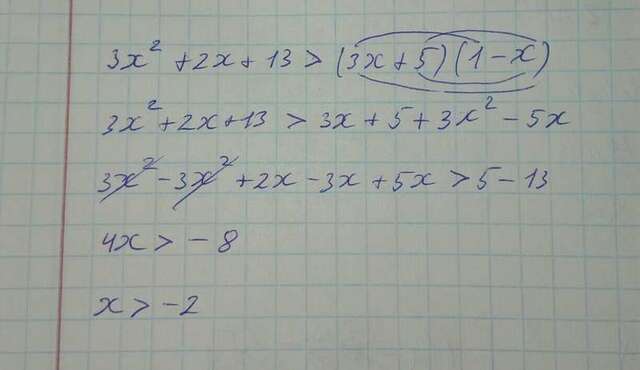 3x² + 2x + 13 > (3x + 5)(1 - x)
3x² + 2x + 13 > 3x + 5 + 3x² - 5x
3x² - 3x² + 2x - 3x + 5x > 5 - 13
4x > -8
x > -2